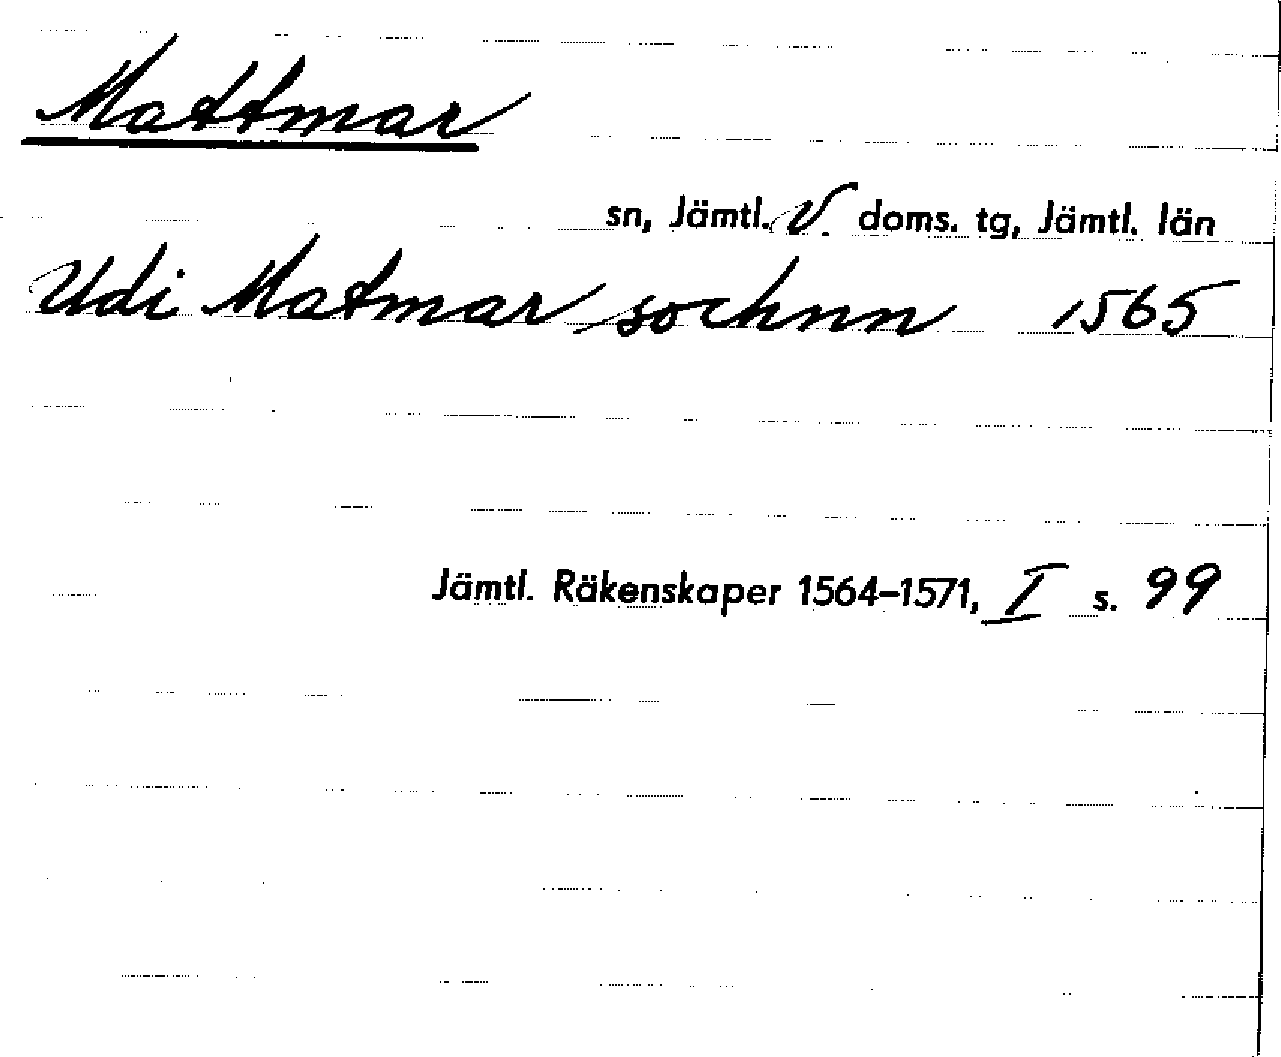 Mattmar
sn, Jämtl. V. doms. tg, Jämtl. län
Udi Matmar sochnn 1565
Jämtl. Räkenskaper 1564–1571, I s. 99